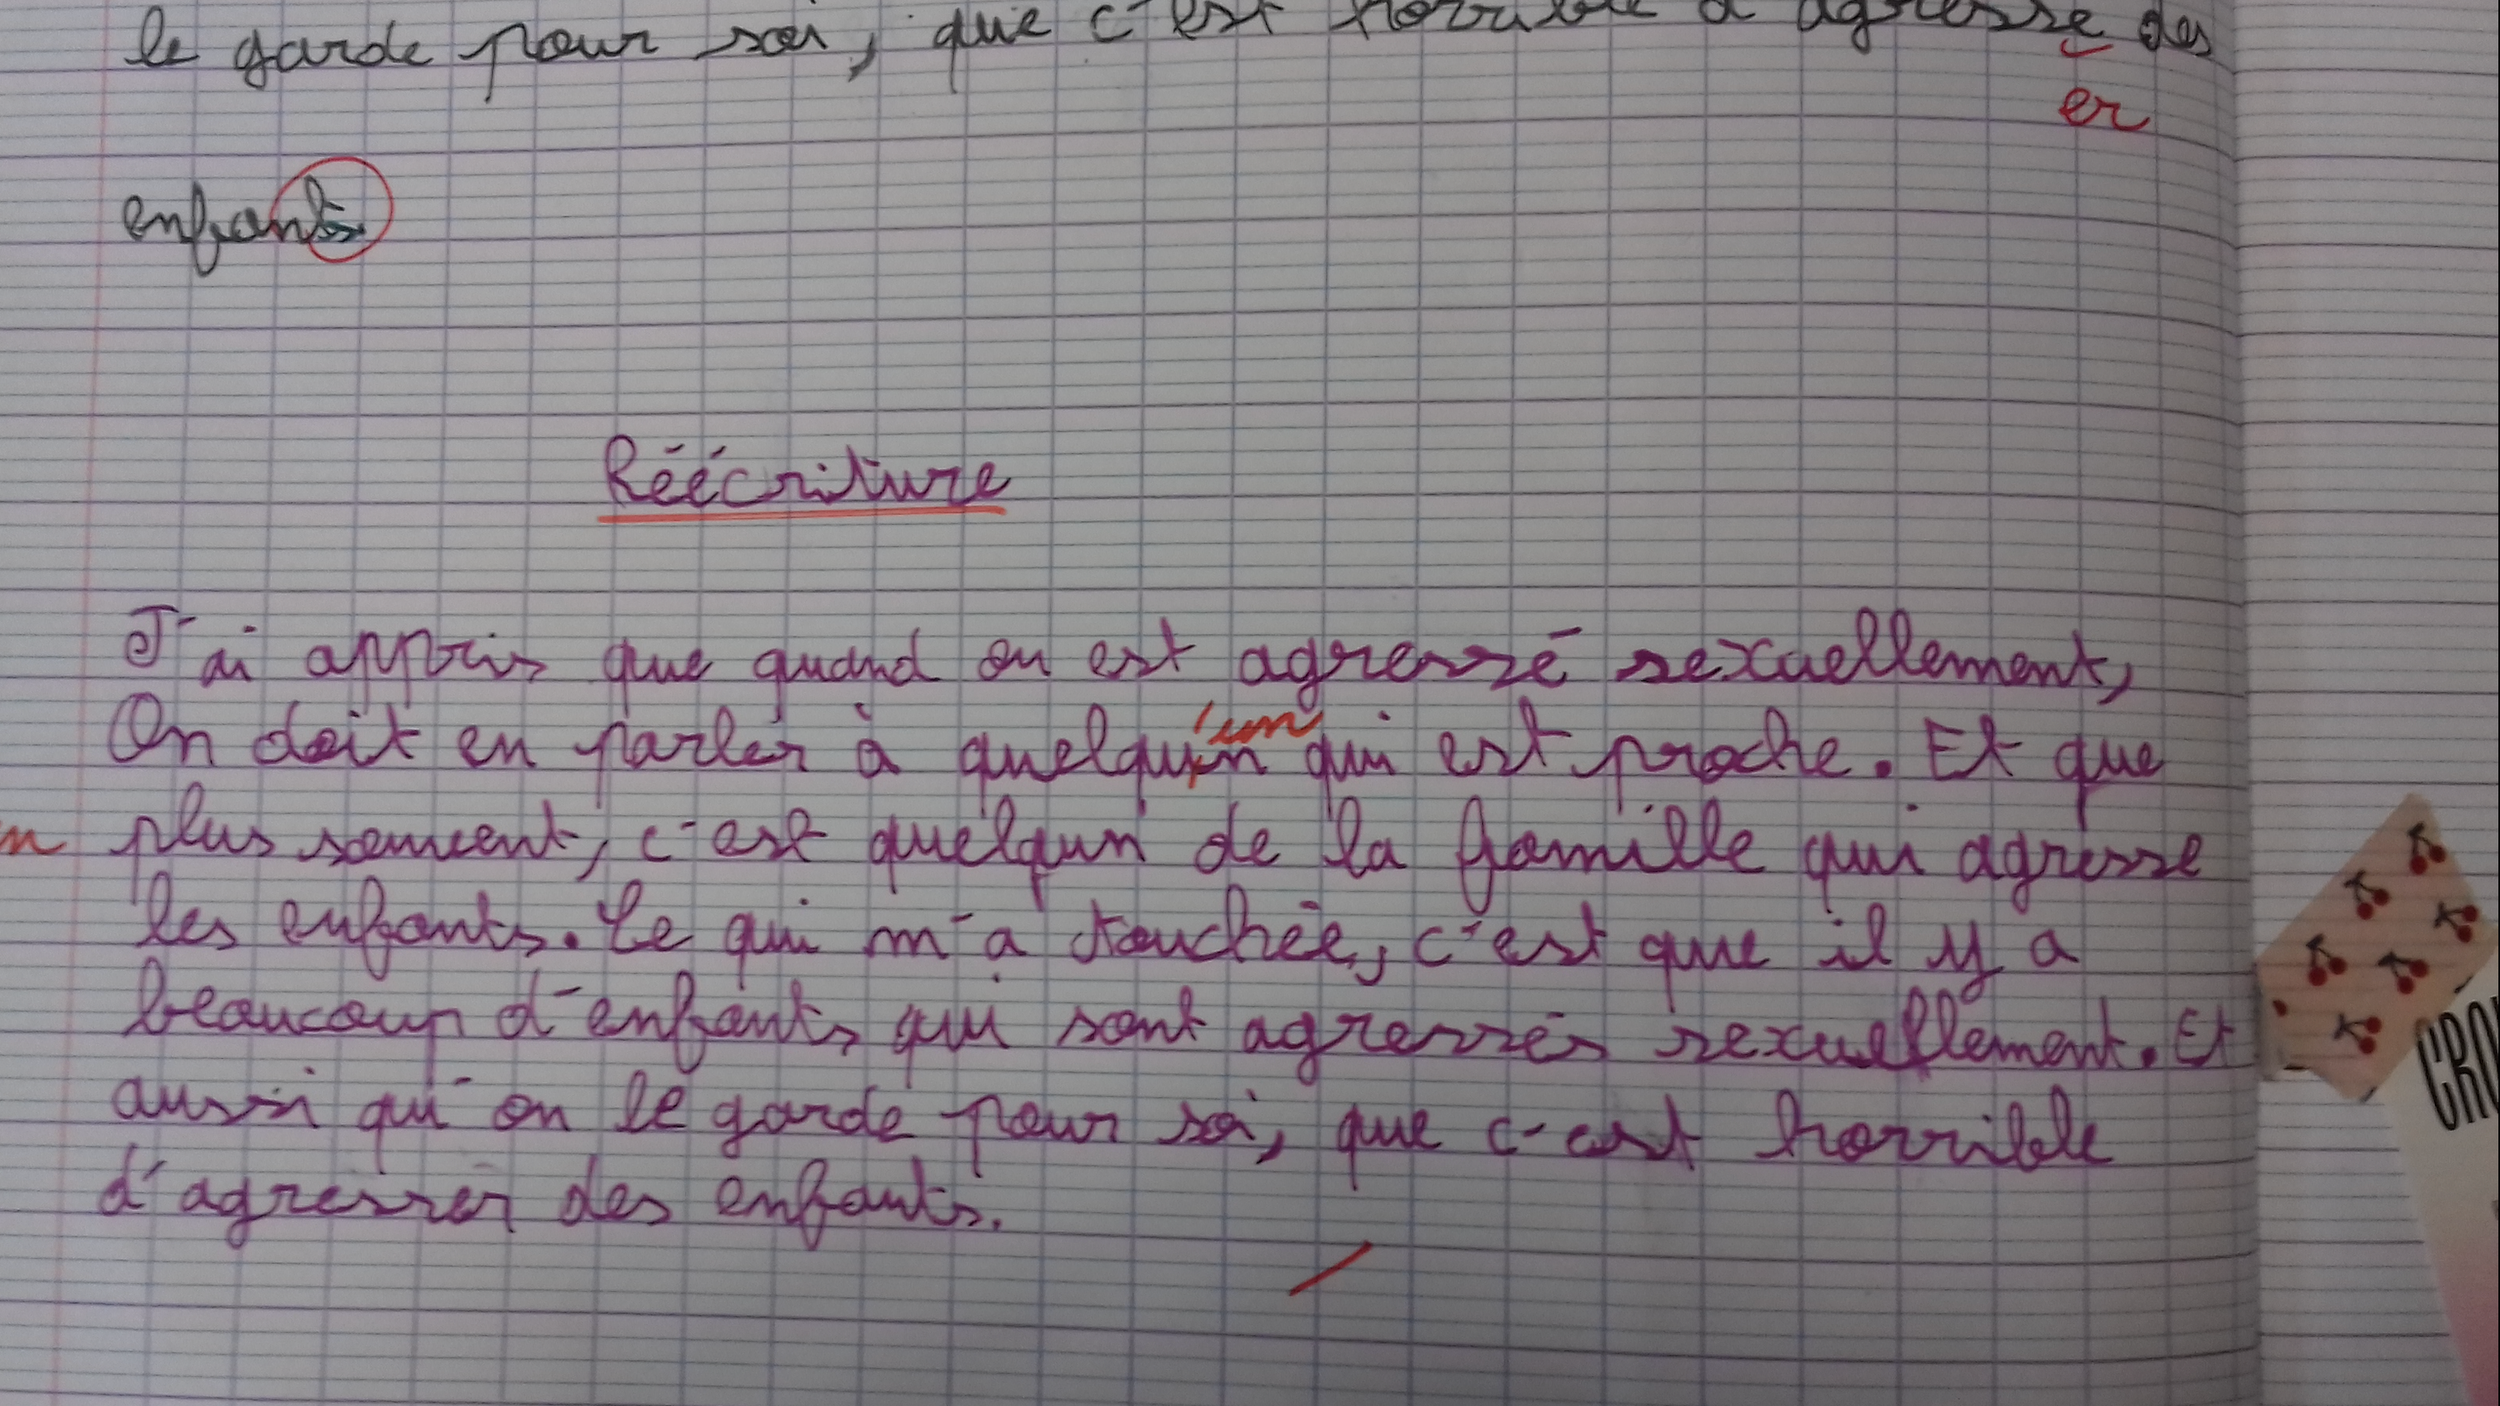 le garde pour soi, que c'est horrible d'agressé des
er
enfants
Réécriture
J'ai appris que quand on est agressé sexuellement,
On doit en parler à quelqu'un qui est proche. Et que
plus souvent, c'est quelqun de la famille qui agresse
les enfants. Ce qui m'a touchée, c'est que il y a
beaucoup d'enfants qui sont agressés sexuellement. Et
aussi qui on le garde pour soi, que c'est horrible
d'agresser des enfants.
CRO